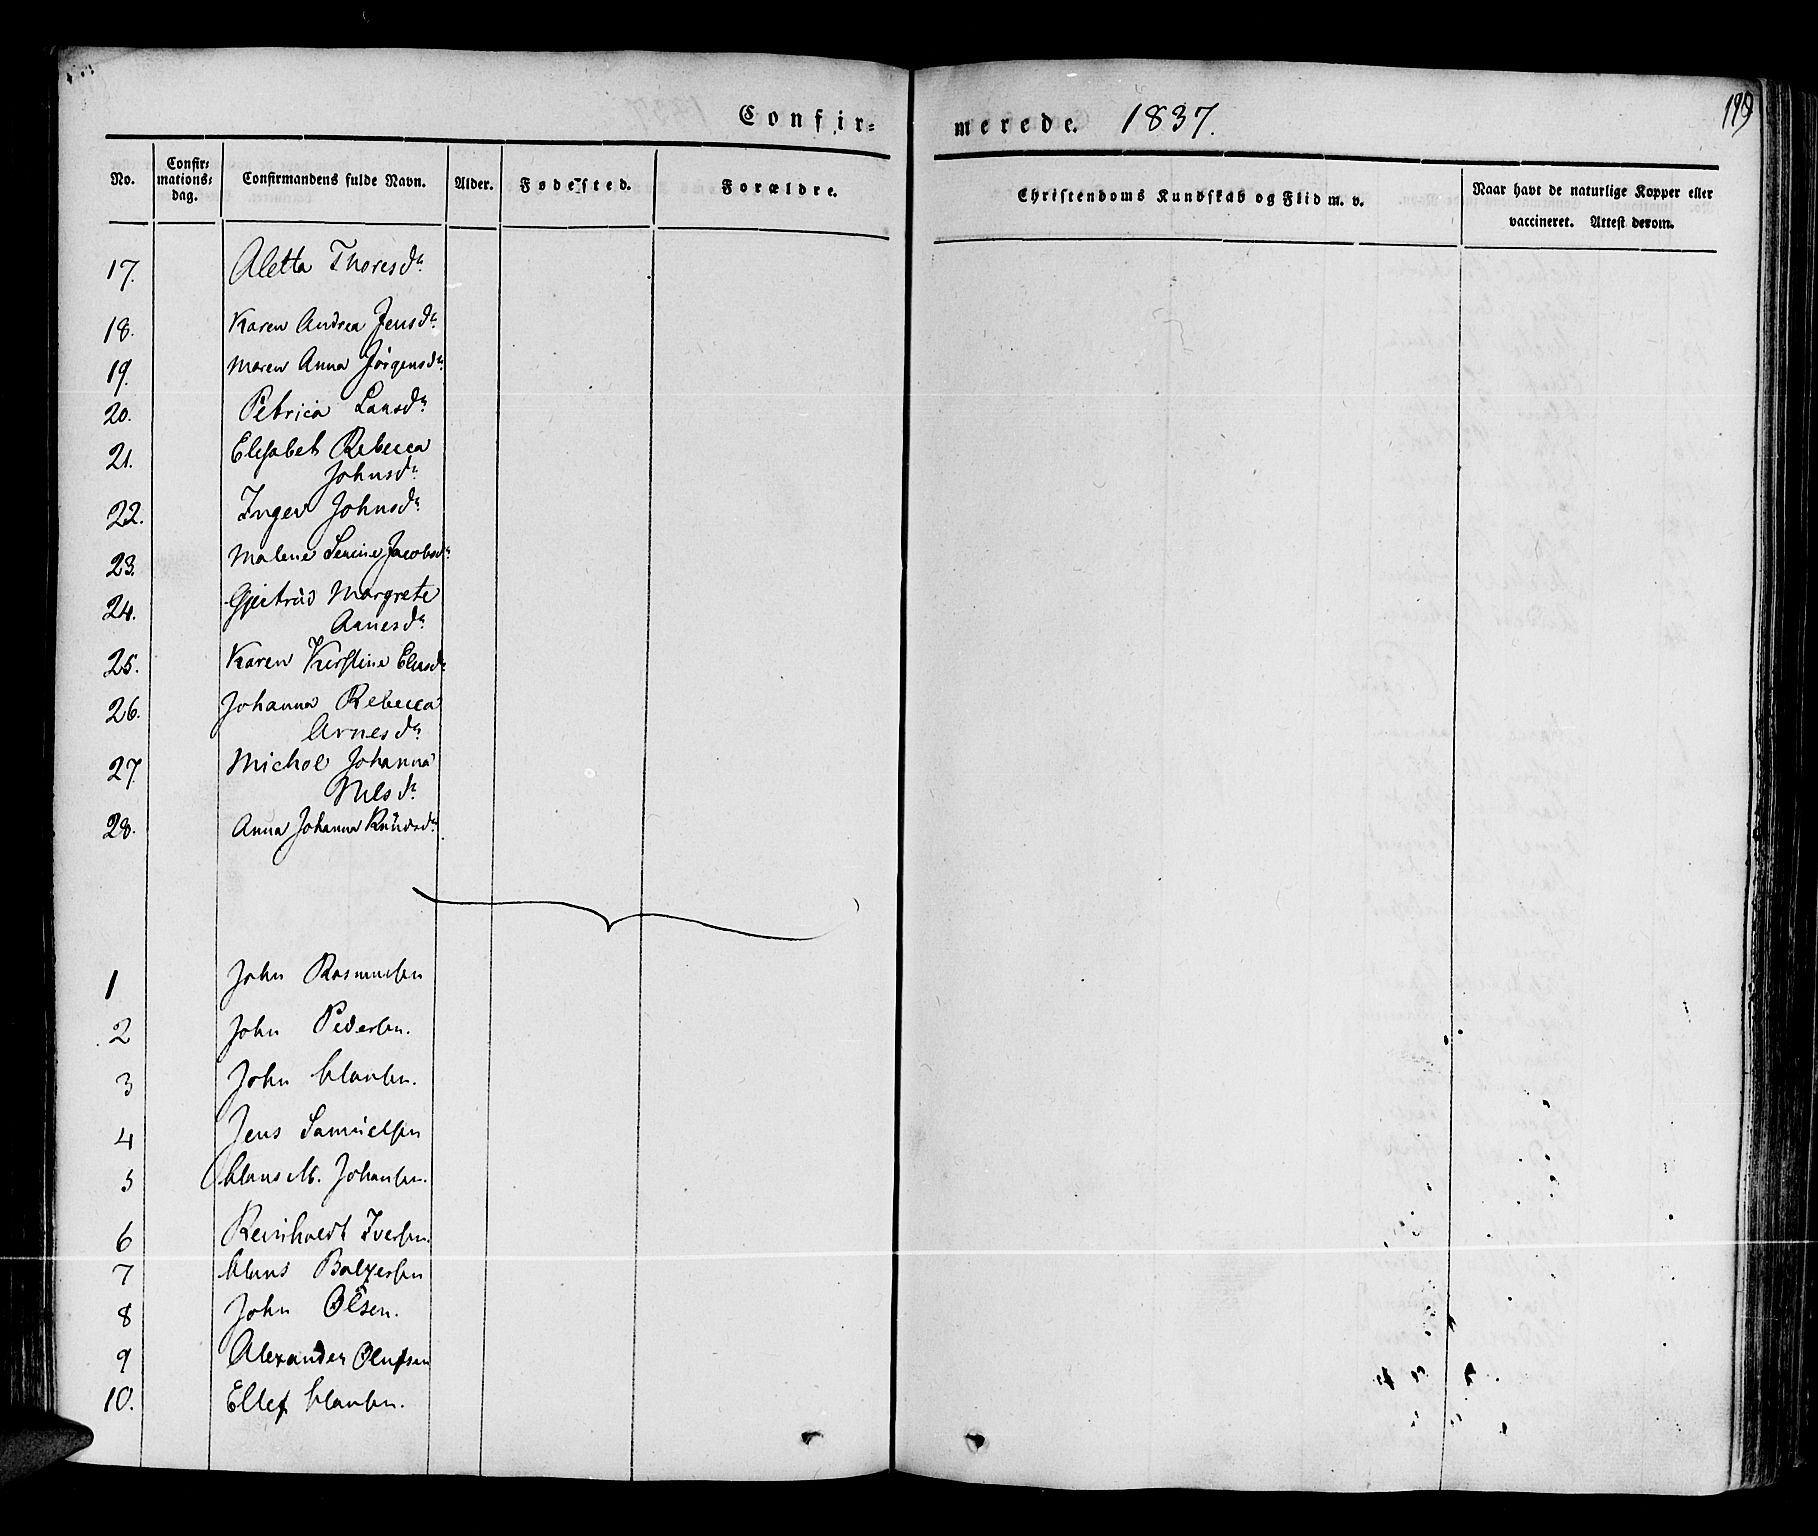 Confir= merede. 1837.
199
No.
Confir=
mations=
dag.
Confirmandens fulde Navn.
Alder.
Fødested.
Forældre.
Christendoms Kundskab og Flid m. v.
Naar havt de naturlige Kopper eller
vaccineret. Attest derom.
17. Aletta Thoresdr
18. Karen Andrea Jensdr
19. Maren Anna Jørgensdr
20. Petrica Larsdr
21. Elisabet Rebecca
Johnsdr
22. Inger Johnsdr
23. Malene Serine Jacobsdr
24. Gjertrud Margrete
Aanesdr
25. Karen Kirstine Eliasdr
26. Johanna Rebecca
Arnesdr
27. Michol Johanna
Nilsdr
28. Anna Johanna Knudsdr
1 John Rasmussen
2 John Pedersen.
3 John Clausen.
4 Jens Samuelsen
5 Claus M. Johansen.
6 Reinholdt Iversen.
7 Claus Balzersen
8 John Olsen.
9 Alexander Olufsen
10. Ellef Clausen.